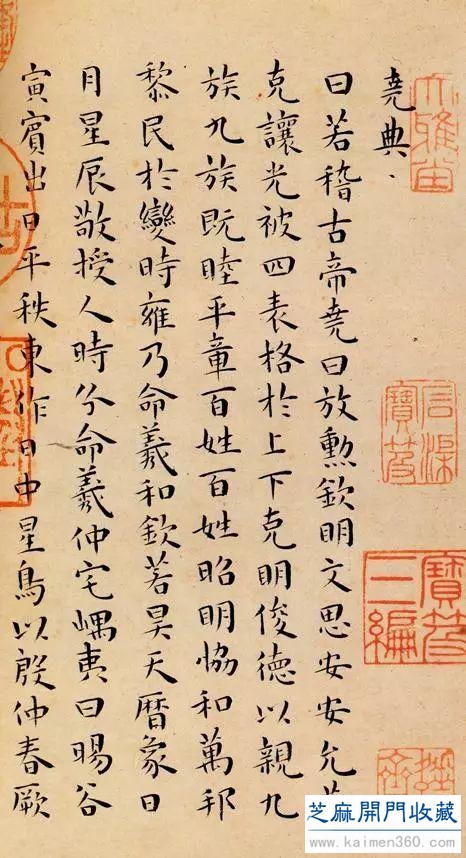 堯典、
曰若稽古帝堯曰放勲欽明文思安安允
克讓光被四表格於上下克明俊德以親九
族九族既睦平章百姓百姓昭明恊和萬邦
黎民於變時雍乃命羲和欽若昊天曆象日
月星辰敬授人時分命羲仲宅嵎夷曰暘谷
寅賓出日平秩東作日中星鳥以殷仲春厥
大雅堂
石渠寶笈
寶笈三編
芝麻開門收藏
www.kaimen360.com